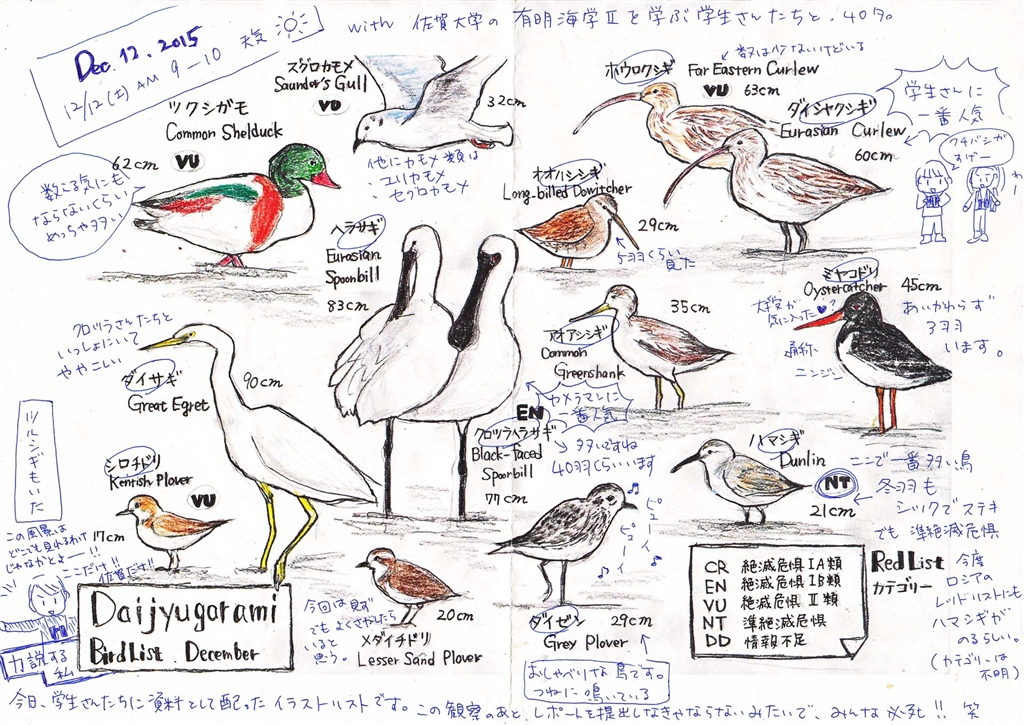 Dec. 12, 2015
12/12(土) AM 9-10
天気
with 佐賀大学の有明海学Ⅱを学ぶ学生さんたちと、40名。
ツクシガモ
Common Shelduck
62cm
VU
数える気にも
ならないくらい
めっちゃ多い
ズグロカモメ
Saunder's Gull
VU
32cm
他にカモメ類は
・ユリカモメ
・セグロカモメ
ホウロクシギ
Far Eastern Curlew
VU 63cm
数は少ないけどいる
ダイシャクシギ
Eurasian Curlew
60cm
学生さんに
一番人気
クチバシが
すげー
わー
オオハシシギ
Long-billed Dowitcher
29cm
5羽くらい見た
ヘラサギ
Eurasian
Spoonbill
83cm
クロツラさんたちと
いっしょにいて
ややこしい
ミヤコドリ
Oystercatcher
45cm
気に入った♥?
通称
ニンジン
あいかわらず
3羽
います。
アオアシシギ
Common
Greenshank
35cm
ダイサギ
Great Egret
90cm
カメラマンに
一番人気
EN
クロツラヘラサギ
Black-faced
Spoonbill
77cm
多いですね
40羽くらいいます
ハマシギ
Dunlin
NT
21cm
ここで一番多い鳥
冬羽も
シックでステキ
でも 準絶滅危惧
今度
ロシアの
レッドリストにも
ハマシギが
のるらしい。
(カテゴリーは
不明)
ツルシギもいた
シロチドリ
Kentish Plover
VU
17cm
この風景は
どこでも見れるわけ
じゃなかとよー!!
ここだけ!!
佐賀だけ!!
力説する
私
Daijyugarami
Bird List December
今回は見ず
でもよくさがしたら
いると
思う。
20cm
メダイチドリ
Lesser Sand Plover
ピューイ
ピューイ
ダイゼン
Grey Plover
29cm
おしゃべりな鳥です。
つねに鳴いている
CR 絶滅危惧ⅠA類
EN 絶滅危惧ⅠB類
VU 絶滅危惧Ⅱ類
NT 準絶滅危惧
DD 情報不足
Red List
カテゴリー
今日、学生さんたちに資料として配ったイラストリストです。この観察のあと、レポートを提出しなきゃならないみたいで、みんな必死!! 笑